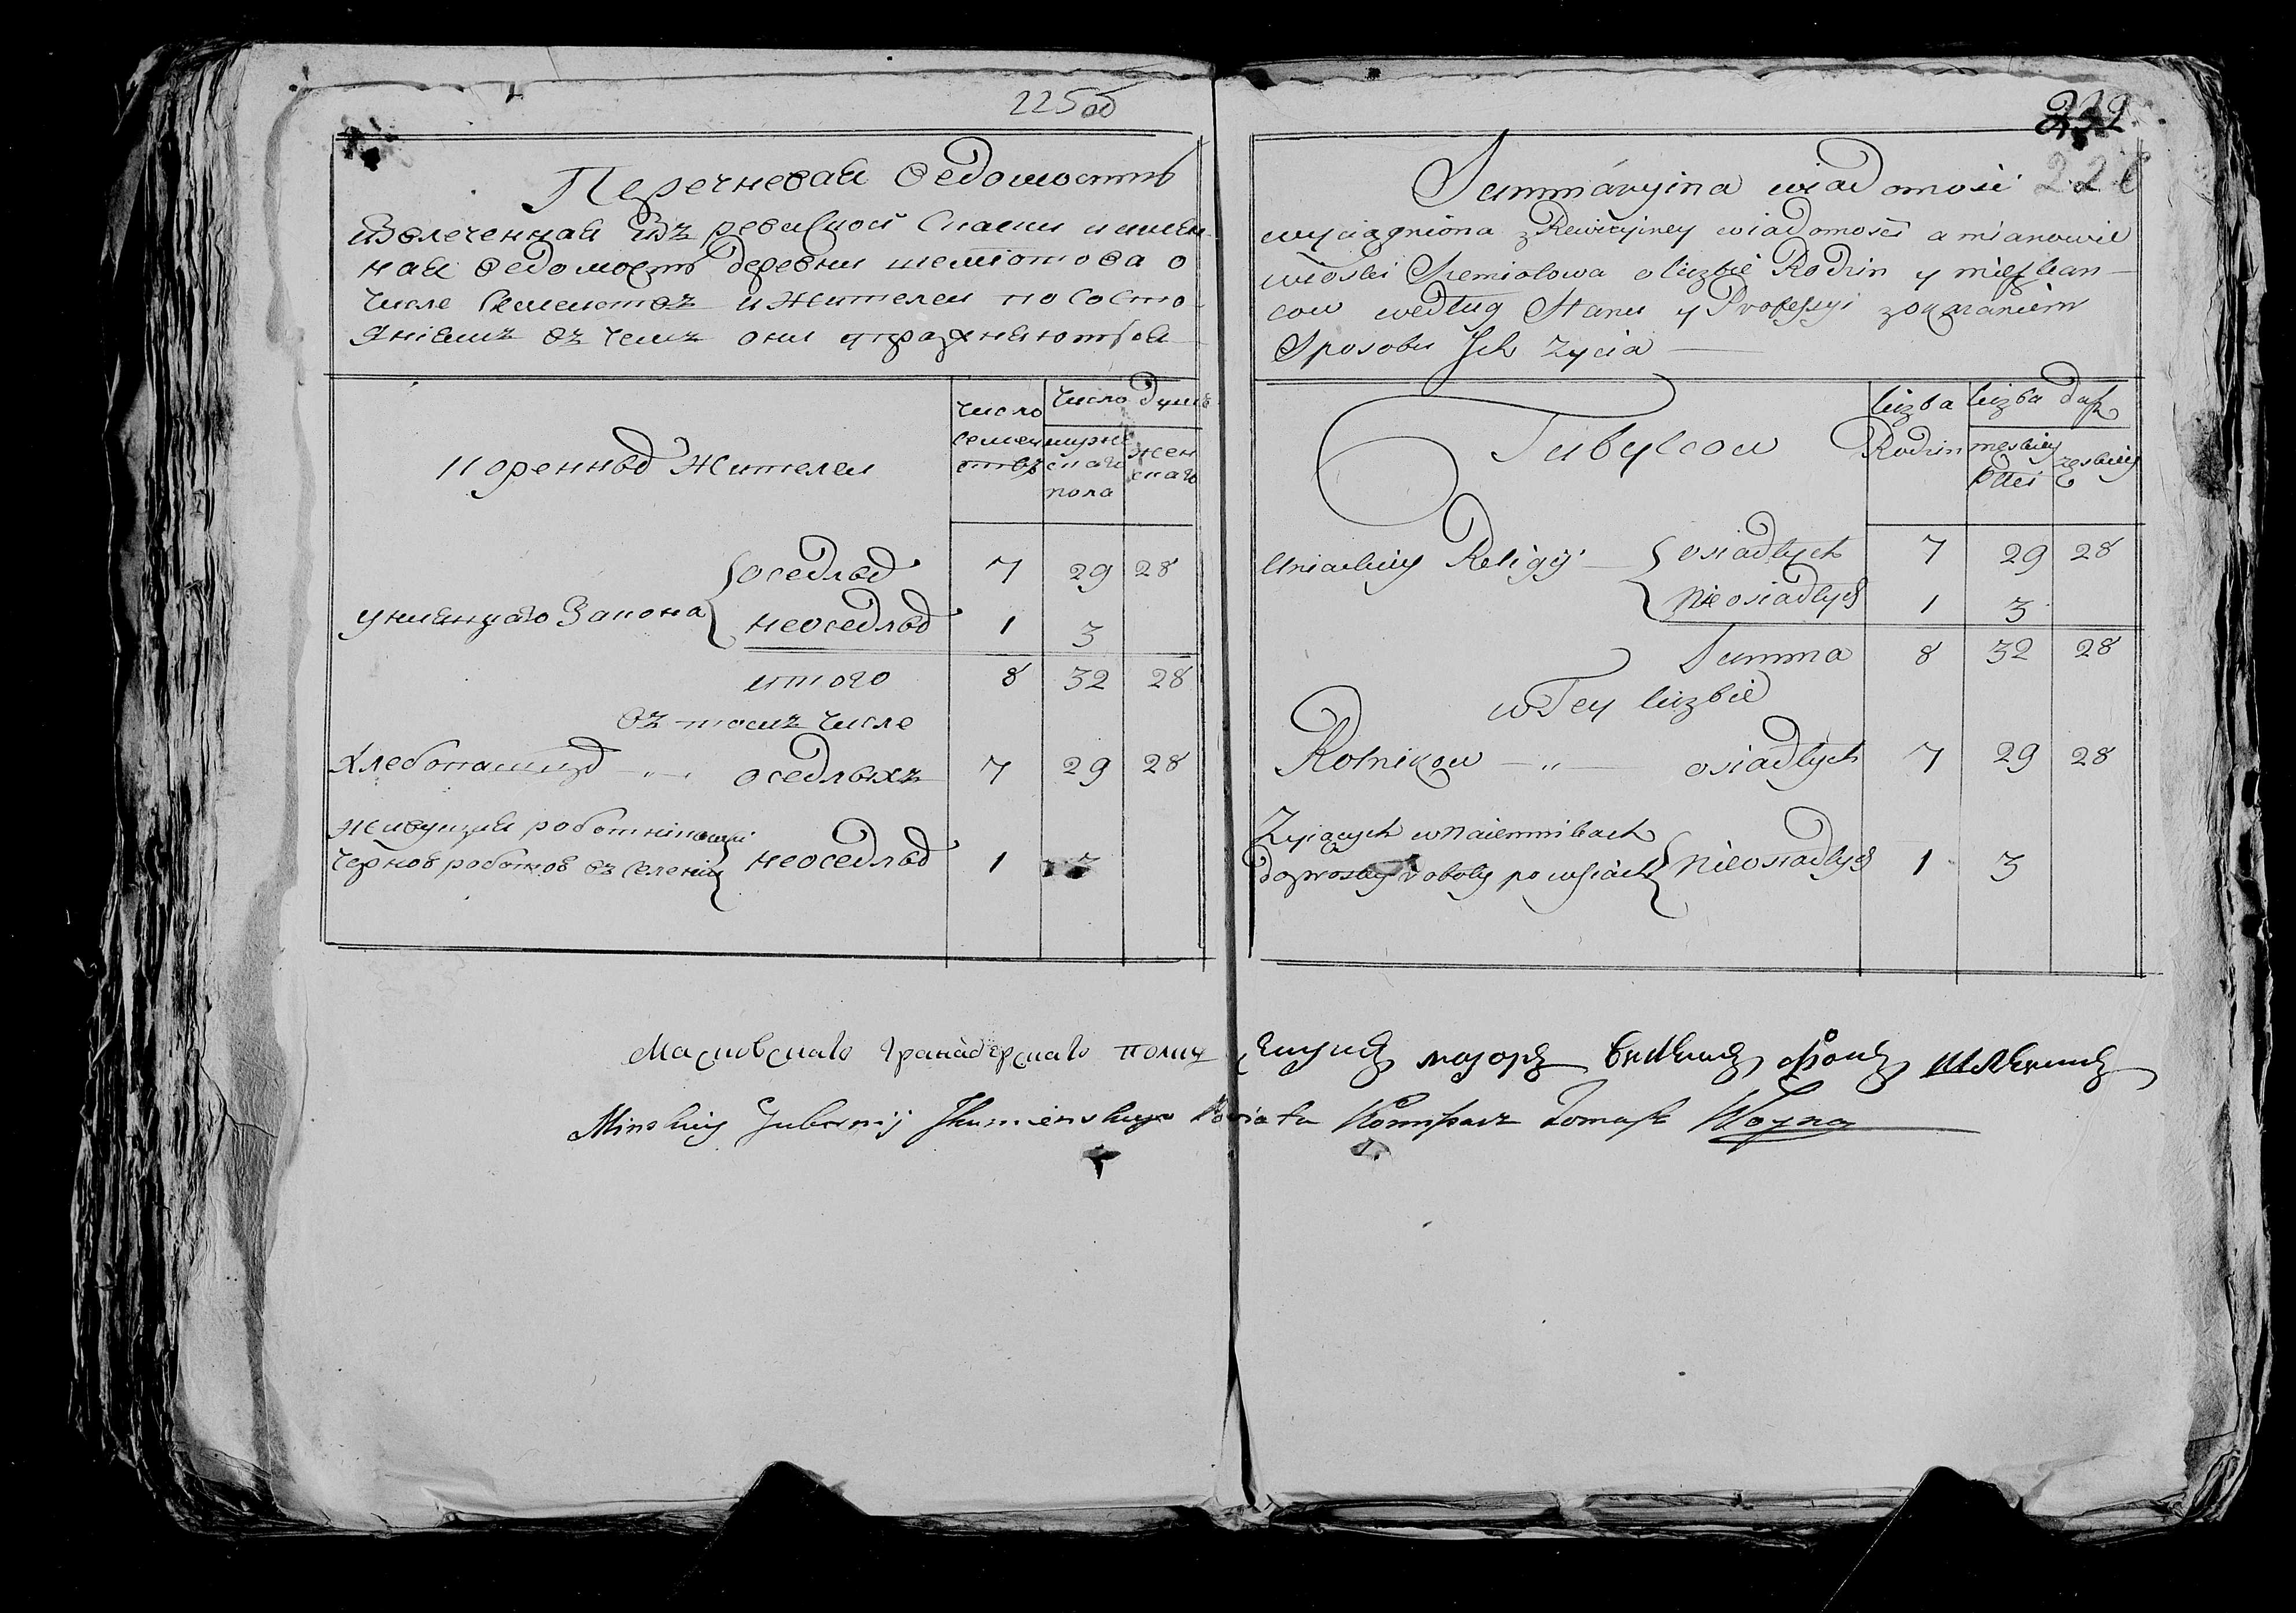 225об
Перечневая ведомость
Извлеченная изъ ревиской Сказки и имен-
ная ведомость деревни шемiотова о
Числе Семействъ и Жителей по состо-
янiямъ въ чемъ они упражняются
Коренныхъ Жителей
Число семействъ
Число душъ
мужескаго пола
женскаго
униянцкаго Закона оседлыхъ 7 29 28
неоседлыхъ 1 3
итого 8 32 28
въ томъ числе
Хлебопашцовъ „ оседлыхъ 7 29 28
Живущия
Черноъ работов въ Селенiи неоседлыхъ 1 3
232
226
Summáryina wiadomość
wyciągniona z Rewizyiney wiadomości a mianowie
wioski Szemiotowa o liczbie Rodzin y mieszkan-
cow według Stanu y Professyi z okazaniem
Sposobu Ich życia
Tubylcow
liczba Rodzin
liczba dusz
męskiey płci
żeskiey
Uniackiey Religÿ osiadłych 7 29 28
Nieosiadłych 1 3
Summa 8 32 28
w Tey liczbie
Rolnikow „ osiadłych 7 29 28
Zyiących w Naiemnikach
do prostey roboty po wsiach Nieosiadłych 1 3
Масковскаго гранадерскаго полку Секундъ маӥоръ
Minskiey Gubernij Jhumienskiego Powiatu Kommisarz Tomasz Woyna